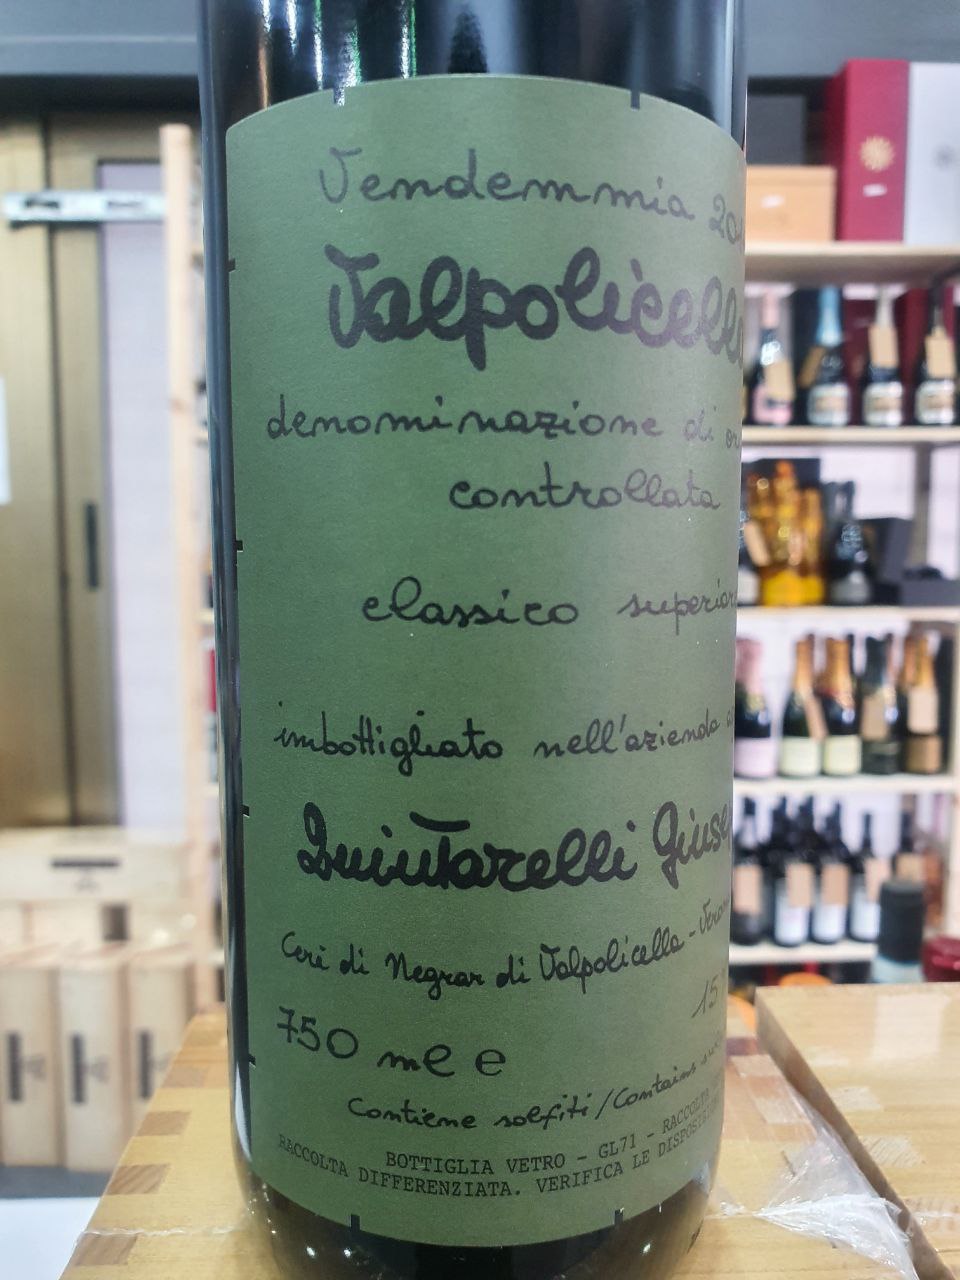 Vendemmia 20
Valpolicella
denominazione di or
controllata
classico superior
imbottigliato nell'azienda
Quintarelli Giuse
Cerè di Negrar di Valpolicella - Verona
15
750 ml e
Contiene solfiti / Contains su
BOTTIGLIA VETRO - GL71 - RACCOLTA
RACCOLTA DIFFERENZIATA. VERIFICA LE DISPOSIZIONI